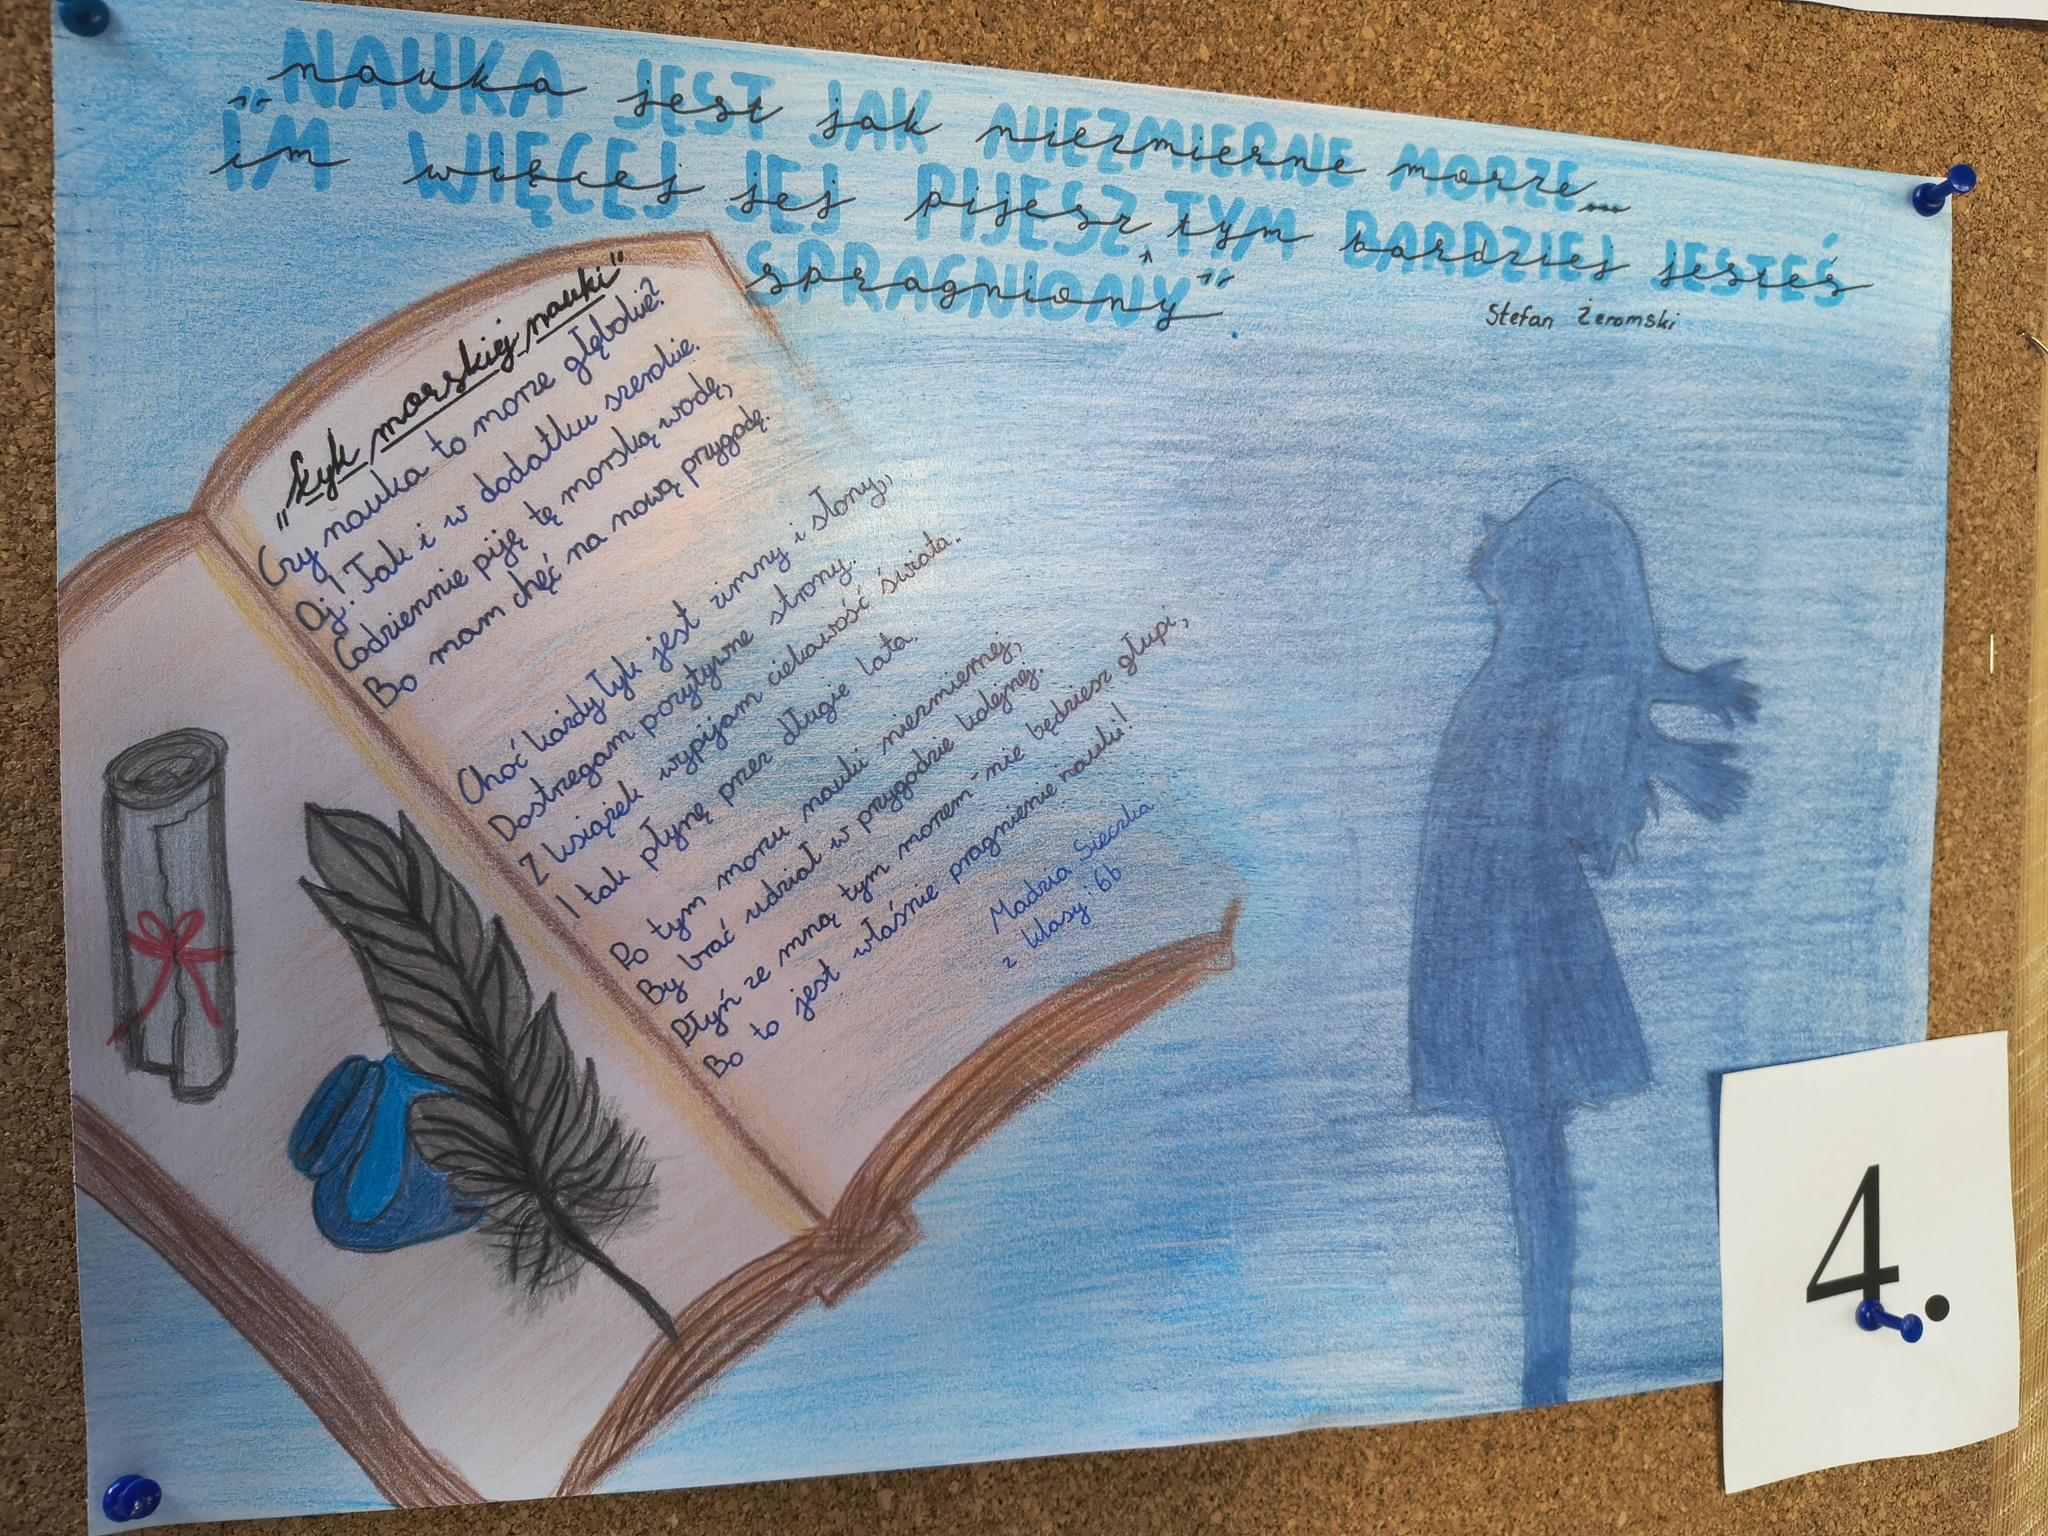 „nauka jest jak niezmierne morze...
im więcej jej pijesz, tym bardziej jesteś
spragniony"
Stefan Żeromski
„Łyk morskiej nauki"
Czy nauka to morze głębokie?
Oj! Tak i w dodatku szerokie.
Codziennie piję tę morską wodę,
Bo mam chęć na nową przygodę.
Choć każdy łyk jest zimny i słony,
Dostrzegam pozytywne strony.
Z książek wypijam ciekawość świata.
I tak płynę przez długie lata.
Po tym morzu nauki niezmiernej,
By brać udział w przygodzie kolejnej.
Płyń ze mną tym morzem - nie będziesz głupi,
Bo to jest właśnie pragnienie nauki!
Madzia Sieczka
z klasy 6b
4.